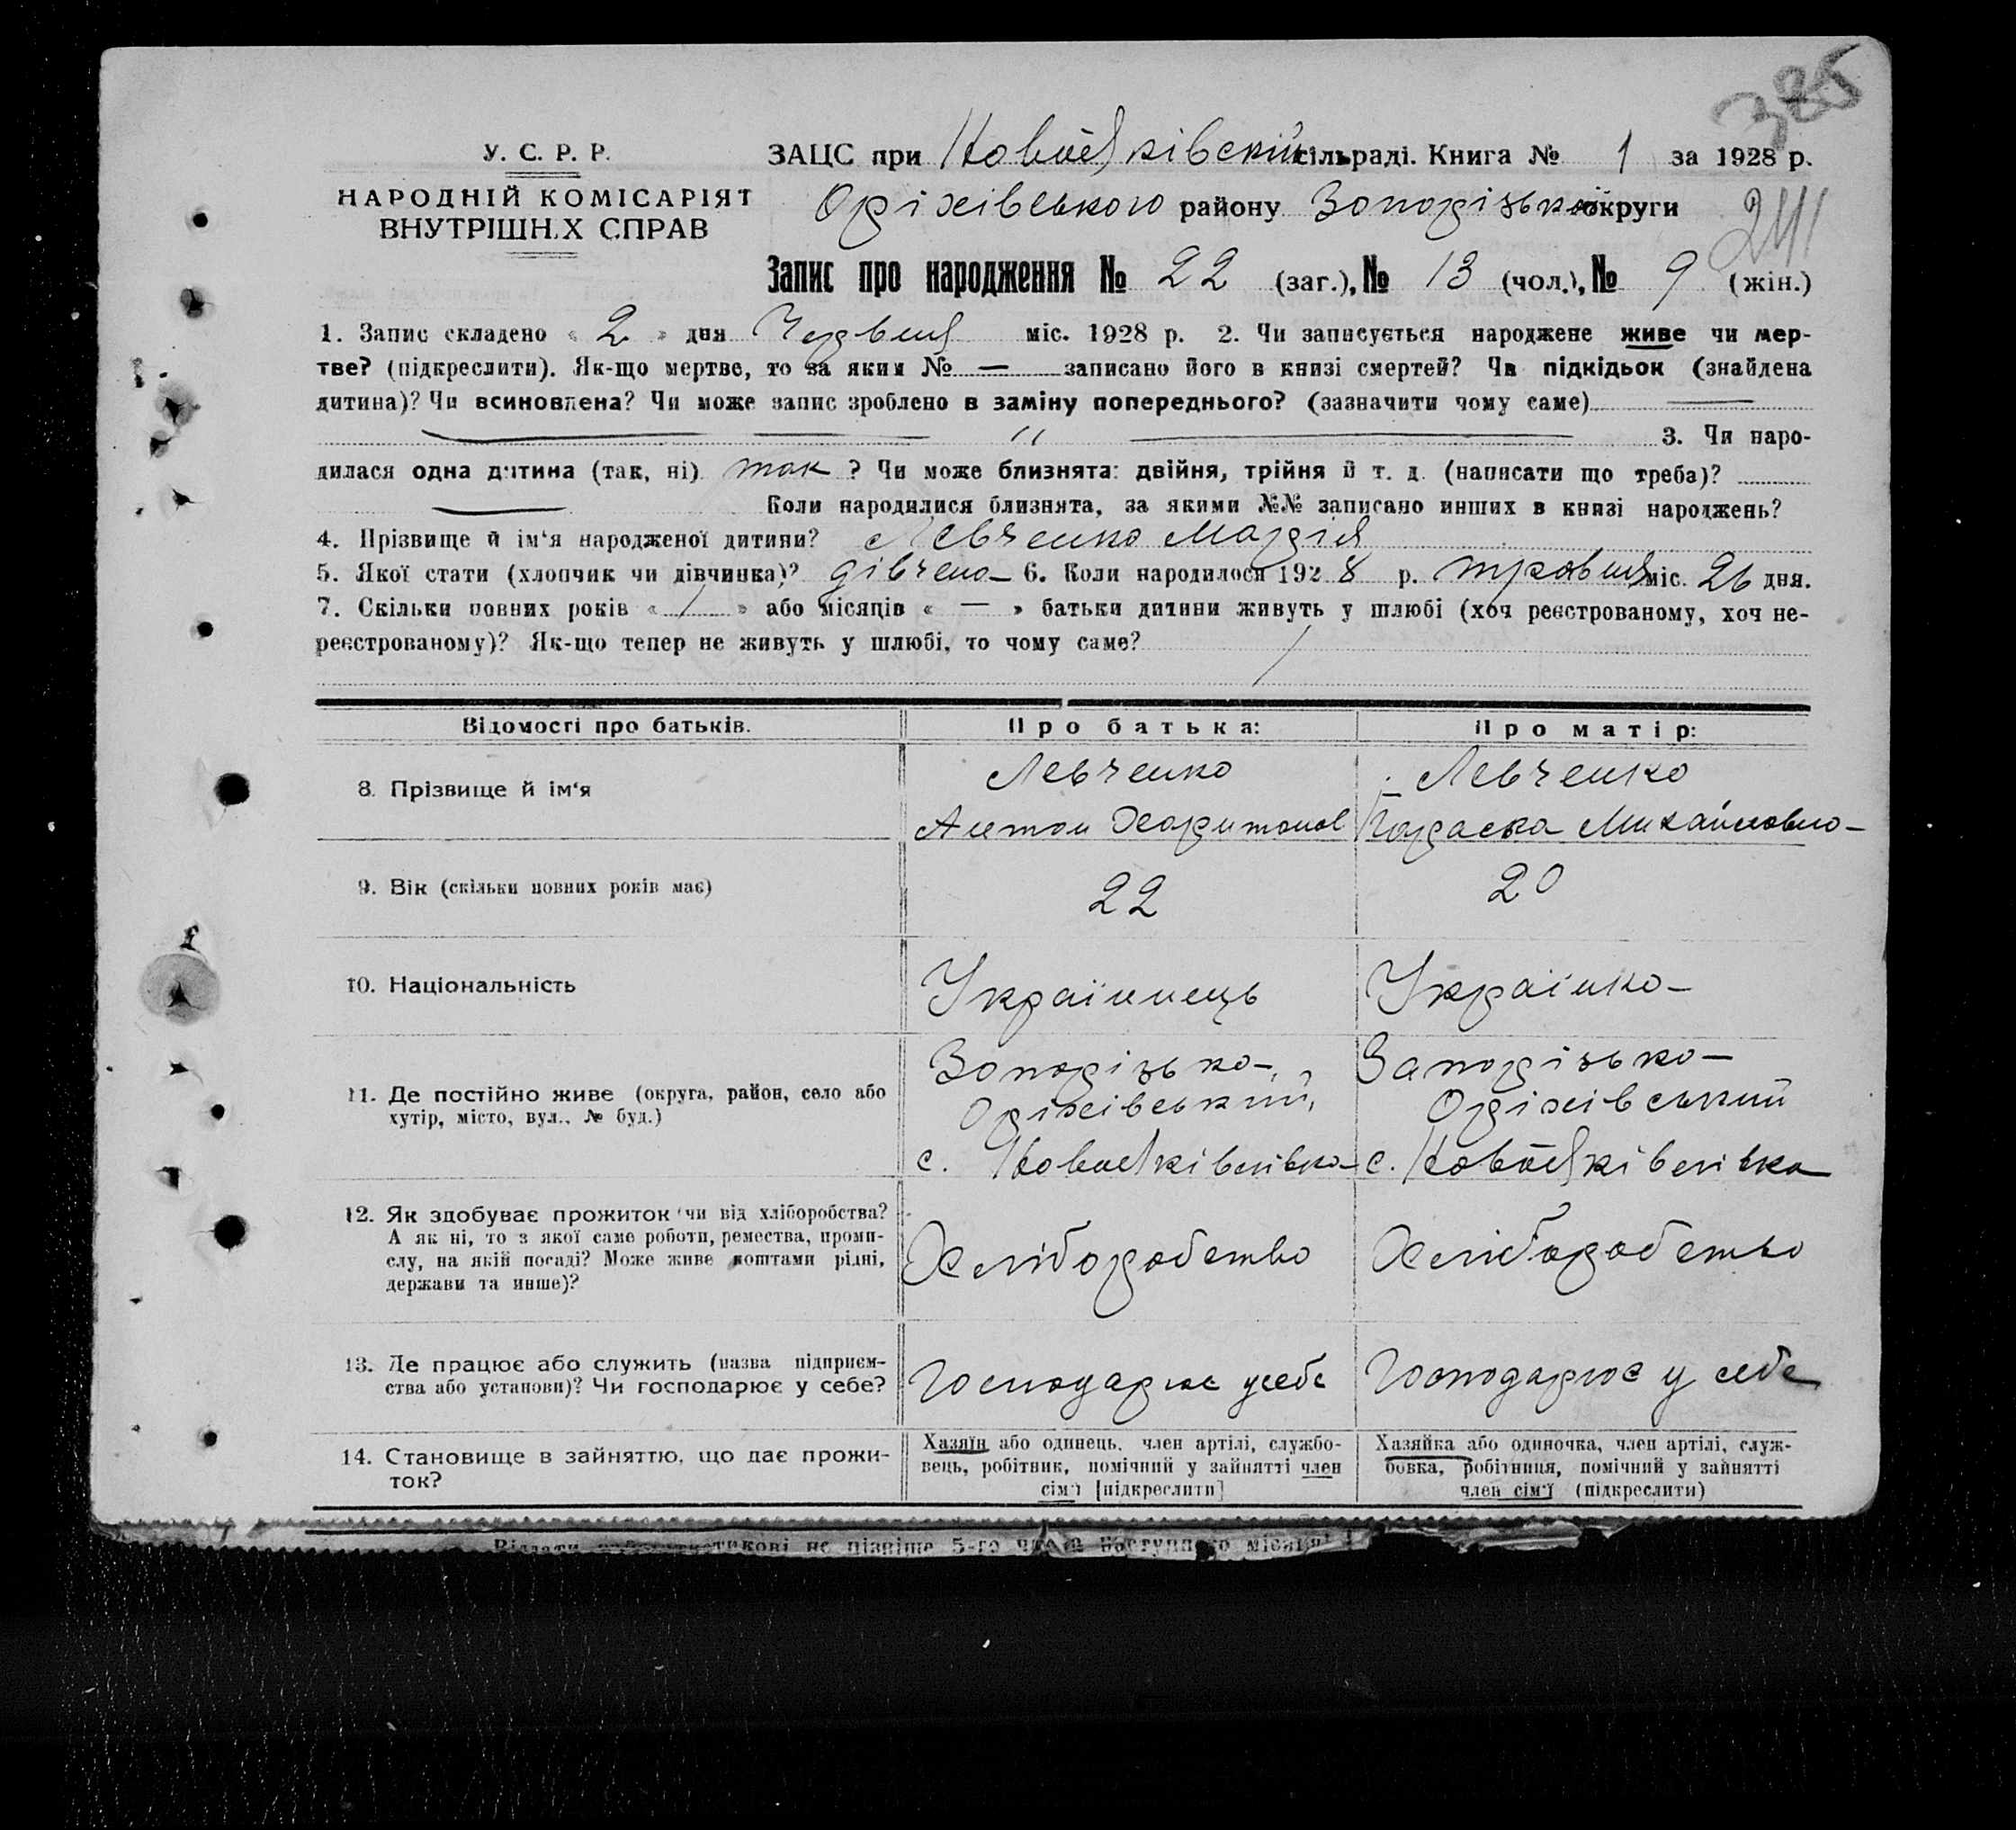 385
У. С. Р. Р.
НАРОДНІЙ КОМІСАРІЯТ
ВНУТРІШНІХ СПРАВ
ЗАЦС при НовоЯківській сільраді. Книга № 1 за 1928 р.
Оріхівського району Запорізької округи
Запис про народження № 22 (заг.), № 13 (чол.), № 9 (жін.)
1. Запис складено « 2 » дня Червня міс. 1928 р. 2. Чи записується народжене живе чи мер-
тве? (підкреслити). Як-що мертве, то за яким № — записано його в книзі смертей? Чи підкідьок (знайдена
дитина)? Чи всиновлена? Чи може запис зроблено в заміну попереднього? (зазначити чому саме) —
— — " — 3. Чи наро-
дилася одна дитина (так, ні) так ? Чи може близнята: двійня, трійня й т. д. (написати що треба)?
— Коли народилися близнята, за якими №№ записано инших в книзі народжень?
4. Прізвище й ім‘я народженої дитини? Левченко Марія
5. Якої стати (хлопчик чи дівчинка)? дівчена 6. Коли народилося 1928 р. травня міс. 26 дня.
7. Скільки повних років « 1 » або місяців « — » батьки дитини живуть у шлюбі (хоч реєстрованому, хоч не-
реєстрованому)? Як-що тепер не живуть у шлюбі, то чому саме? /
Відомості про батьків.
Про батька:
Про матір:
8. Прізвище й ім‘я
Левченко
Антон Харитонов
Левченко
Параска Михайловна
9. Вік (скільки повних років має)
22
20
10. Національність
Українець
Українка
11. Де постійно живе (округа, район, село або
хутір, місто, вул., № буд.)
Запорізька,
Оріхівський,
с. НовоЯківлівка
Запорізька
Оріхівський
с. НовоЯківлівка
12. Як здобуває прожиток чи від хліборобства?
А як ні, то з якої саме роботи, ремества, проми-
слу, на якій посаді? Може живе коштами рідні,
держави та инше)?
Хліборобство
Хліборобство
13. Де працює або служить (назва підприєм-
ства або установи)? Чи господарює у себе?
Господарює у себе
Господарює у себе
14. Становище в зайняттю, що дає прожи-
ток?
Хазяїн або одинець, член артілі, службо-
вець, робітник, помічний у зайнятті член
сім‘ї [підкреслити]
Хазяйка або одиночка, член артілі, служ-
бовка, робітниця, помічний у зайнятті
член сім‘ї (підкреслити)
не пізніше 5-го